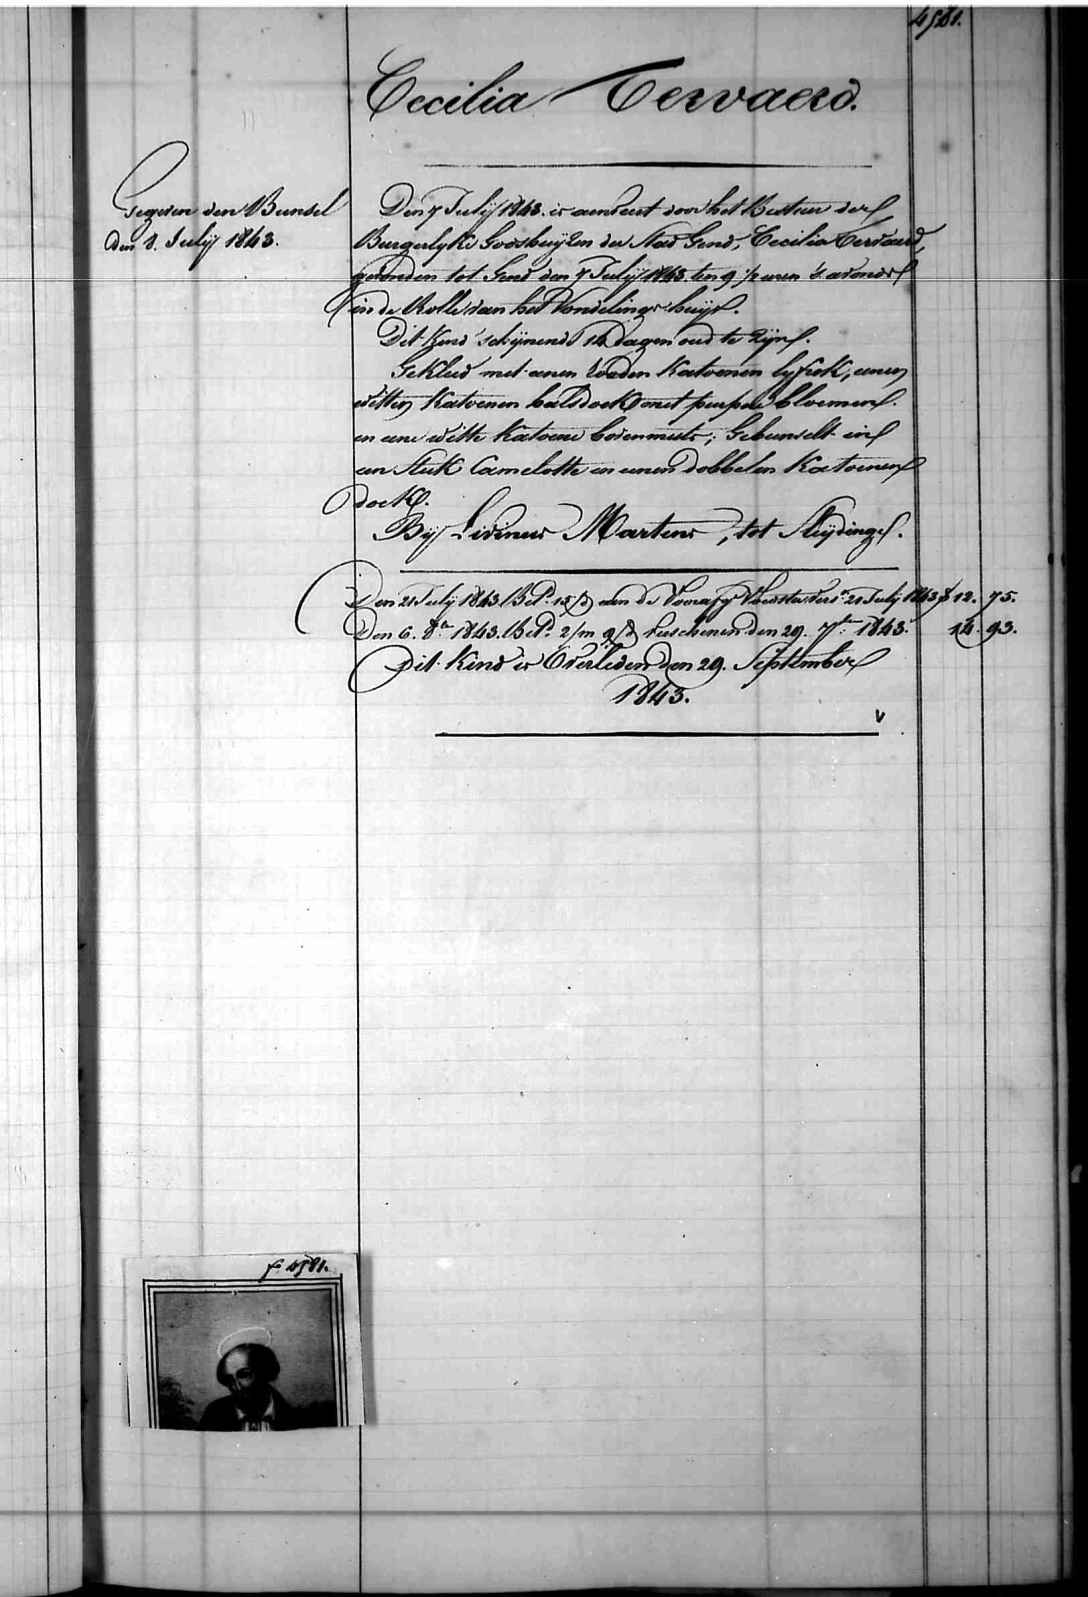 4581.
Cecilia Tervaerd.
Gegeven den Bunsel
den 8. Julÿ 1843.
Den 7 Julÿ 1843. is aenveert door het Bestuer der
Burgerlyke Godshuyzen der Stad Gend, Cecilia Tervaerd,
gevonden tot Gend den 7 Julÿ 1843. ten 9 1/2 uren 's avonds
in de Rolle van het Vondelings-huys.
Dit Kind schynende 14 dagen oud te zyn.
Gekleed met eenen rooden Katoenen lyfrok, eenen
witten Katoenen halsdoek met purpere bloemen.
en eene witte Katoene bovenmuts; Gebunselt in
een stuk Camelotte en eenen dobbelen Katoenen
doek.
Bÿ Livinus Martens, tot Sleÿdinge.
Den 21 Julÿ 1843. Bet. 15/d aen de Voorsz. 21 Julÿ 1843 f 12. 75.
Den 6. 8.e 1843. Bet. 2/m 9/d verschenen den 29. 7.e 1843. 14. 93.
Dit Kind is Overleden den 29. September
1843.
f.o 4581.